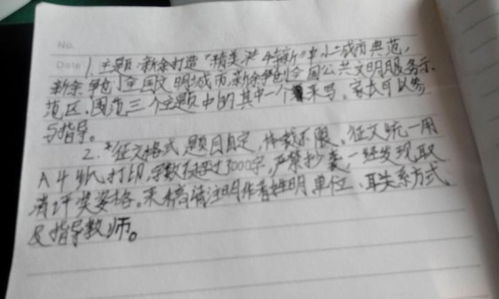 No.
Date 1.主题:新余打造“精美洋特新”中小城市典范,
新余争创全国文明城市,新余争创全国公共文明服务示
范区,围绕三个主题中的其中一个来写,家长可以参
与指导。
2.征文格式,题目自定,体裁不限,征文统一用
A4纸打印,字数不超过1000字,严禁抄袭一经发现取
消评奖资格。来稿请注明作者姓明单位、耳关系方式、
及指导教师。